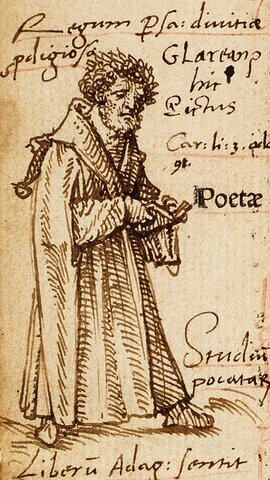 Legum Psa: divitiæ
pdigiosa
GLarean9
hic
Pictus
Car: li: 3. od
9.
Poetæ
Studiū
pocatas
Liberū Adag: sentit